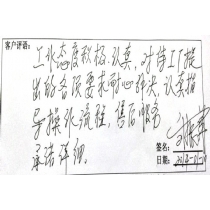 客户评语:
工作态度积极,认真,对待工厂提
出的各项要求耐心解决,认真指
导操作流程,售后服务
承诺详细。
签名:
日期: